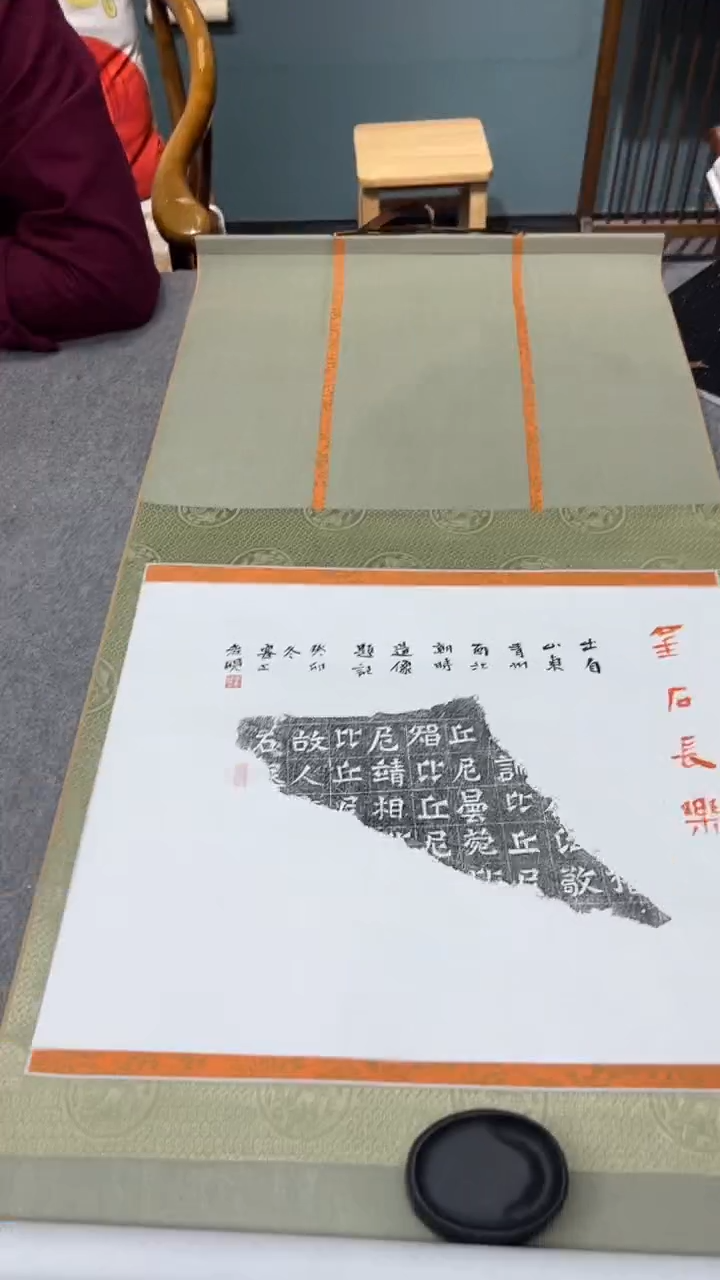 金石長樂
出自
山東
青州
南北
朝時
造像
題記
癸卯
冬
敬
比丘尼
丘尼曇菀比
比丘尼
尼靖相比
比丘尼
故人
石